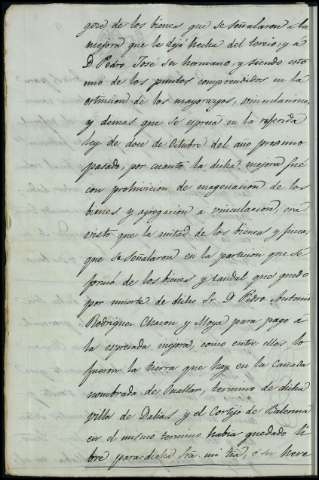 gore de los bienes que se señalaron a la
mejora que le dejó hecha del tercio, y á
D. Pedro Jose su hermano, y siendo esto
uno de los puntos comprendidos en la
estincion de los mayorazgos, vinculaciones
y demas que se espresa en la referida
Ley de doce de Octubre del año procsimo
pasado, por cuanto la dicha mejora fué
con prohivicion de enagenacion de los
bienes y agregacion a vinculacion, era
visto que la mitad de los bienes y fincas
que se señalaron en la particion que se
formó de los bienes y caudal que quedó
por muerte de dicho Sr. D. Pedro Antonio
Rodriguez Chacon y Moya para pago a
la espresada mejora, como entre ellas lo
fueron la tierra que hay en la Cañada
nombrada de termino de dicha
villa de Dalias y el Cortijo de
en el mismo termino habia quedado li-
bre para dicha Sra. mi tia, o su here